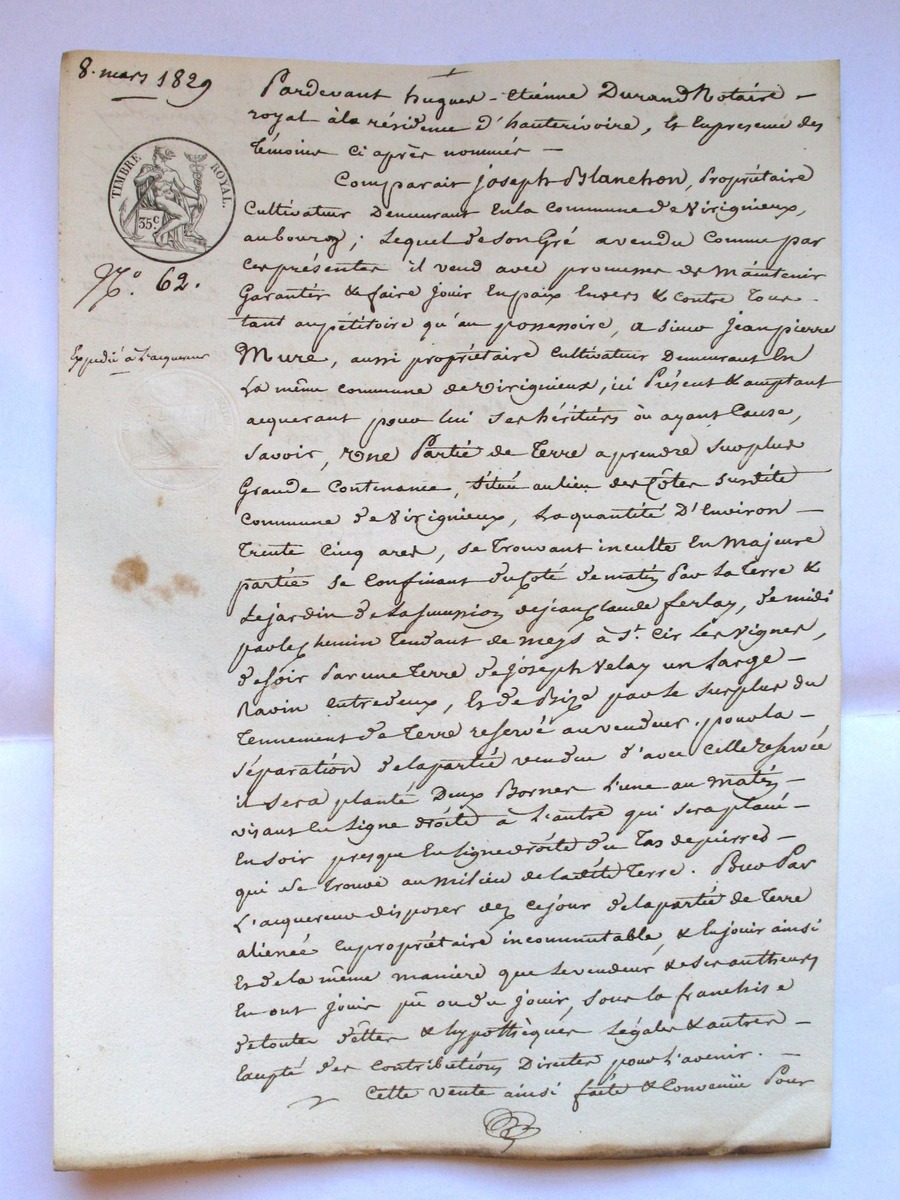 8. mars 1829
TIMBRE ROYAL.
35 c
N.o 62.
Expédié à L'acquereur
Pardevant hugues - etiénne Durand Notaire -
royal à la résidence D'hauterivoire, Et Enpresence des
témoins Ci après nommés -
Comparait joseph Blanchon, Propriétaire
Cultivateur Demeurant Enla Commune de Virignieux,
aubourg ; Lequel deson Gré avendu Comme par
Ces présentes il vend avec promesses de Maintenir
Garantir & faire Jouir Enpaix Envers & Contre Tous -
tant aupétitoire qu'au possessoire, a sieur Jeanpierre
Mure, aussi propriétaire Cultivateur Demeurant En
La même commune de Virignieux, ici Présent & acceptant
acquerant pour lui Ses héritiers ou ayant Cause,
Savoir, une Partié de Terre aprendre Surplus
Grande Contenance, Situé aulieu des Côtes Susdite
Commune de Virignieux, La quantité D'Environ -
Trente Cinq ares, se Trouvant inculte En Majeure
partie Se Confinant du Coté de matin Par La Terre &
Lejardin de Lasuccession dejean Claude ferlay, de midi
parle Chemin Tendant de meys à St. Cir Les Vignes,
desoir Parune Terre dejoseph Velay un Large -
Ravin entredeux, Et de Bize par Le Surplus du
Tennement de Terre reservé auvendeur. pourla -
Séparation delapartié vendue d'avec Celle Reservée
il Sera planté Deux Bornes L'une au matin -
visant En Ligne droite à L'autre qui Sera placée -
Ensoir presque En Ligne droite du Tas depierres -
qui Se Trouve aumilieu deladite Terre. Pour Par
L'acquereur disposer dez Cejour delapartié de Terre
alienée Enpropriétaire incommutable, & Enjouir ainsi
Et dela même maniere que Levendeur & Ses autheurs
En ont jouir pû ou du jouir, Sous la franchise
detoutes dettes & hypothèques Légales & autres -
Excepté des Contributions Directes pour L'avenir. -
Cette vente ainsi faite & Convenüe Pour